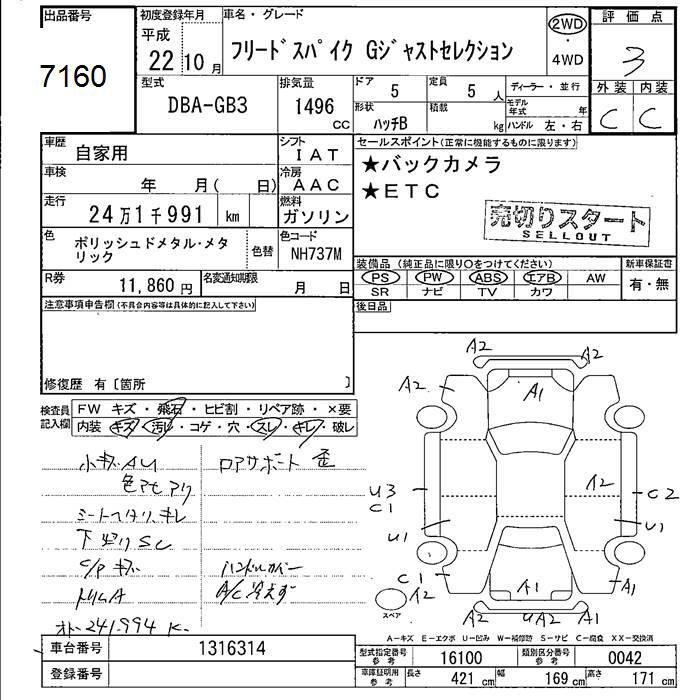 出品番号
7160
初度登録年月
平成
22年10月
車名・グレード
フリードスパイク Gジャストセレクション
2WD
・
4WD
評価点
3
外装 内装
C C
型式
DBA-GB3
排気量
1496
CC
ドア
5
定員
5人
ディーラー・並行
モデル年式 年
形状
ハッチB
積載
kg
ハンドル 左・右
車歴
自家用
シフト
IAT
車検
年 月( 日)
冷房
AAC
走行
24万1千991 km
燃料
ガソリン
色
ポリッシュドメタル・メタ
リック
色替
色コード
NH737M
R券
11,860円
名変通知期限
月 日
セールスポイント(正常に機能するものに限ります)
★バックカメラ
★ETC
売切りスタート
SELLOUT
装備品(純正品に限り○をつけてください)
新車保証書
PS PW ABS エアB AW
SR ナビ TV カワ
有・無
後日品
注意事項申告欄(不具合内容等は具体的に記入して下さい)
修復歴 有〔箇所 〕
検査員
記入欄
FW キズ・飛石・ヒビ割・リペア跡・×要
内装 キズ・汚レ・コゲ・穴・スレ・キレ・破レ
小キズAU
ロアサポート 歪
色アセアリ
下廻りSC
C/Pキズ
ハンドルカバー
A/C冷えず
241,994 K
A2
A2
A2
A2
A1
U3
C1
A2
C2
U1
U1
C1
A1
A1
A2
スペア
A2
UA2
A2
A-キズ E-エクボ U-凹み W-補修跡 S-サビ C-腐食 XX-交換済
車台番号
1316314
登録番号
型式指定番号
参考
16100
類別区分番号
参考
0042
車庫証明用
参考
長さ
421 cm
幅
169 cm
高さ
171 cm